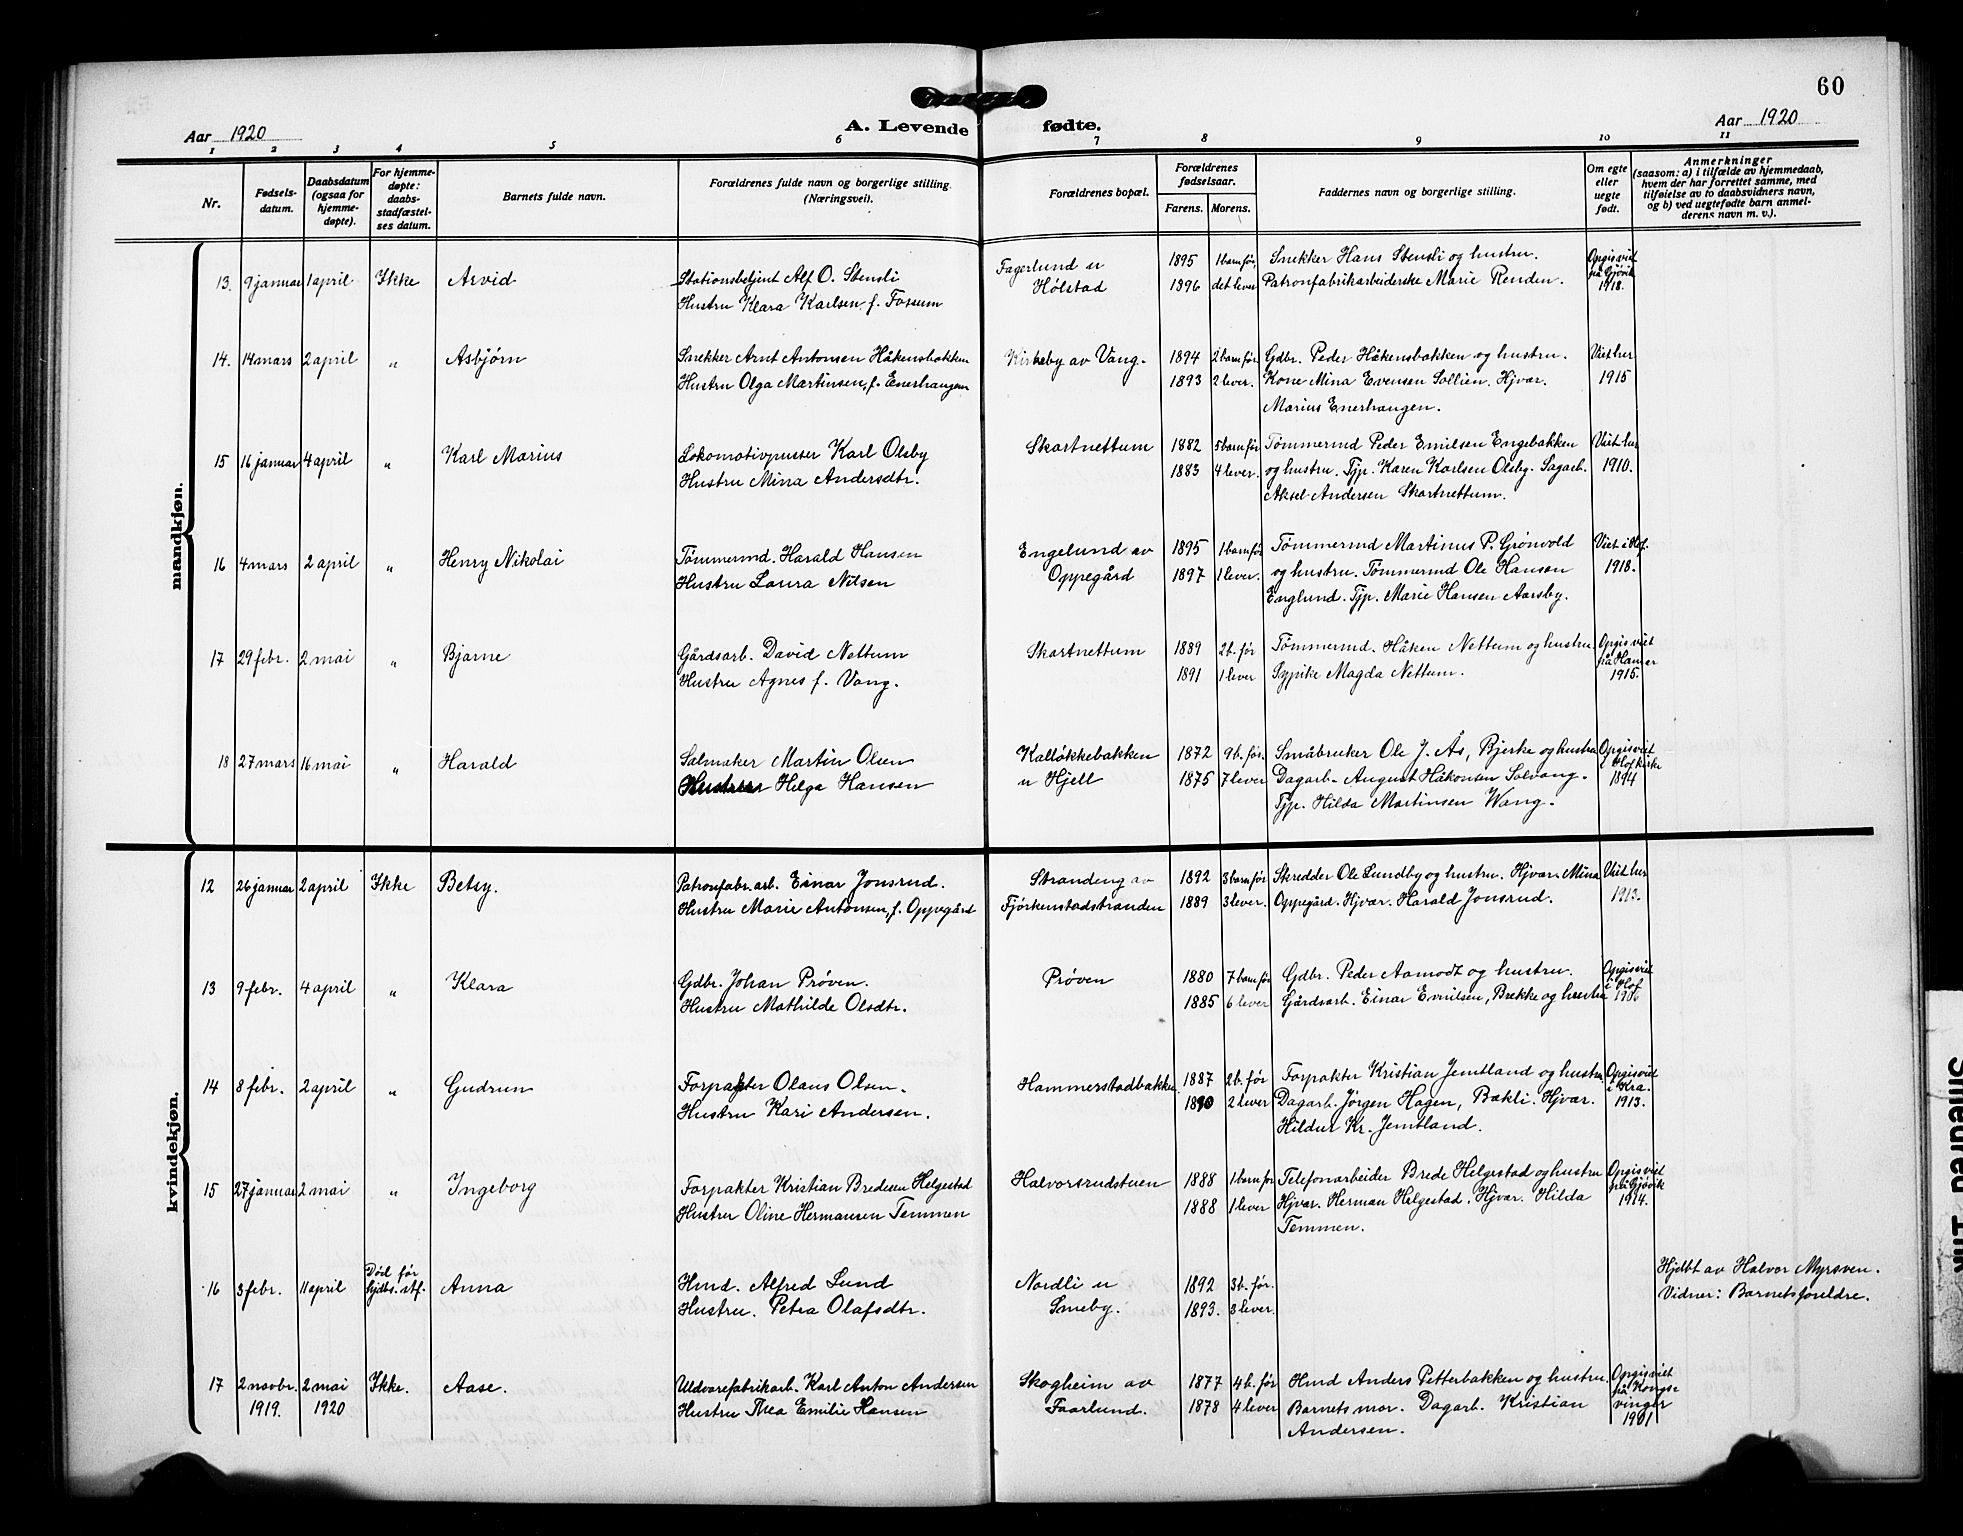 60
Aar 1920
A. Levende fødte.
Aar 1920
1 2 3 4 5 6 7 8 9 10 11
Nr.
Fødsels-
datum.
Daabsdatum
(ogsaa for
hjemme-
døpte).
For hjemme-
døpte:
daabs-
stadfæstel-
ses datum.
Barnets fulde navn.
Forældrenes fulde navn og borgerlige stilling.
(Næringsvei).
Forældrenes bopæl.
Forældrenes
fødselsaar.
Farens. Morens.
Faddernes navn og borgerlige stilling.
Om egte
eller
uegte
født.
Anmerkninger
(saasom: a) i tilfælde av hjemmedaab,
hvem der har forrettet samme, med
tilføielse av to daabsvidners navn,
og b) ved uegtefødte barn anmel-
derens navn m. v.).
mandkjøn.
13. 9 januar 1 april Ikke Arvid Stationsbetjent Alf O. Stensli Fagerlund u 1895 1 barn før, Snekker Hans Stensli og hustru. Opgis viet
Hustru Klara Karlsen f. Fossum Hølstad 1896 det lever Patronfabrikarbeiderske Marie Renden. på Gjøvik
1918.
14. 14 mars 2 april " Asbjørn Snekker Arnt Antonsen Håkensbakken Kirkeby av Vang. 1894 2 barn før Gdbr. Peder Håkensbakken og hustru. Viet her
Hustru Olga Martinsen, f. Enerhaugen 1893 2 lever. Kone Mina Evensen Sollien. Hjvar. 1915
Marius Enerhaugen.
15 16 januar 4 april " Karl Marius Lokomotivpusser Karl Olsby Skartnettum 1882 5 barn før Tømmermd Peder Emilsen Engebakken Viet her
Hustru Mina Andersdtr. 1883 4 lever. og hustru. Tjp. Karen Karlsen Olsby. Sagarb. 1910.
Aksel Andersen Skartnettum.
16 4 mars 2 april " Henry Nikolai Tømmermd. Harald Hansen Engelund av 1895 1 barn før Tømmermd Martinus P. Grønvold Viet i Hof
Hustru Laura Nilsen Oppegård 1897 1 lever. og hustru. Tømmermd Ole Hansen 1918.
Englund. Tjp. Marie Hansen Aarsby.
17 29 febr. 2 mai " Bjarne Gårdsarb. David Nettum Skartnettum 1889 2 b. før Tømmermd. Håken Nettum og hustru Opgis viet
Hustru Agnes f. Vang. 1891 1 lever Sypike Magda Nettum. på Hamar
1915.
18 27 mars 16 mai " Harald Salmaker Martin Olsen Kalløkkebakken 1872 9 b. før. Småbruker Ole J. Ås, Bjerke og hustru Opgis viet
Hustru Helga Hansen u Hjell 1875 7 lever Dagarb. August Håkonsen Solvang. i Hof kirke
Tjp. Hilda Martinsen Wang. 1894
kvindekjøn.
12 26 januar 2 april Ikke Betsy. Patronfabr. arb. Einar Jonsrud. Stranding av 1892 3 barn før Skredder Ole Lundby og hustru. Hjvar. Mina Viet her
Hustru Marie Antonsen, f. Oppegård Fjørkenstadstranden 1889 3 lever. Oppegård. Hjvar. Harald Jonsrud. 1913.
13 9 febr. 4 april " Klara Gdbr. Johan Prøven. Prøven 1880 7 barn før Gdbr. Peder Aamodt og hustru. Opgis viet
Hustru Mathilde Olsdtr. 1885 6 lever Gårdsarb. Einar Emilsen, Brekke og hustru i Hof
1906
14 8 febr. 2 april " Gudrun Forpakter Olaus Olsen. Hammerstadbakken 1887 2 b. før Forpakter Kristian Jemtland og hustru. Opgis viet
Hustru Kari Andersen. 1890 2 lever Dagarb. Jørgen Hagen, Bækli. Hjvar. i Kra.
Hildur Kr. Jemtland. 1913.
15 27 januar 2 mai " Ingeborg Forpakter Kristian Bredesen Helgestad Halvorsrudstuen 1888 1 barn før Telefonarbeider Brede Helgestad og hustru Opgis viet
Hustru Oline Hermansen Temmen 1888 1 lever Hjvar. Herman Helgestad. Hjvar. Hilda på Gjøvik
Temmen. 1914.
16 3 febr. 11 april Død før Anna Hmd. Alfred Lund Nordli u 1892 3 b. før. Hjdbt av Halvor Myrsven.
stf. Hustru. Petra Olafsdtr. Smeby. 1893. 3 lever. Vidner: Barnets foreldre.
17 2 novbr. 2 mai Ikke. Aase. Uldvarefabrikarb. Karl Anton Andersen Skogheim av 1877 4 b. før Hmd Anders Petterbakken og hustru. Opgis viet
1919. 1920 Hustru Thea Emilie Hansen Faarlund. 1878 4 lever Barnets mor. Dagarb. Kristian på Kongs-
Andersen. vinger
1901